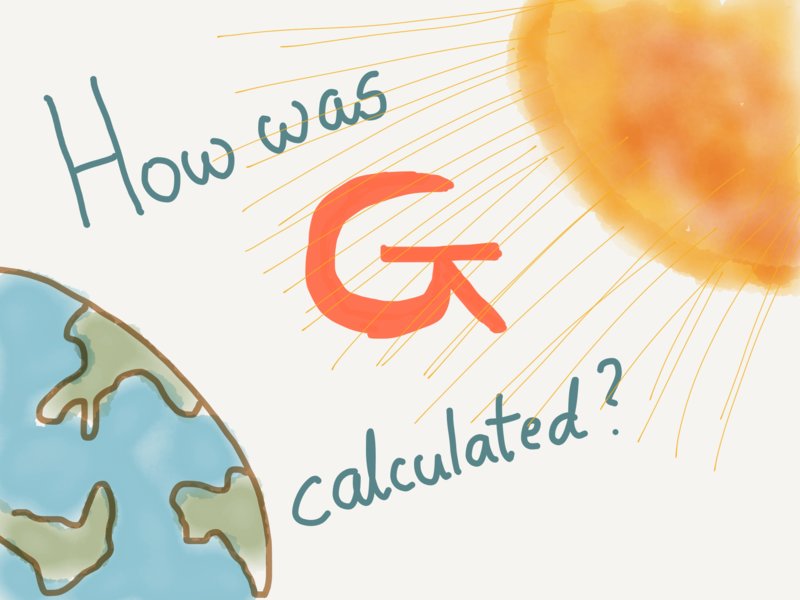 How was
G
calculated?